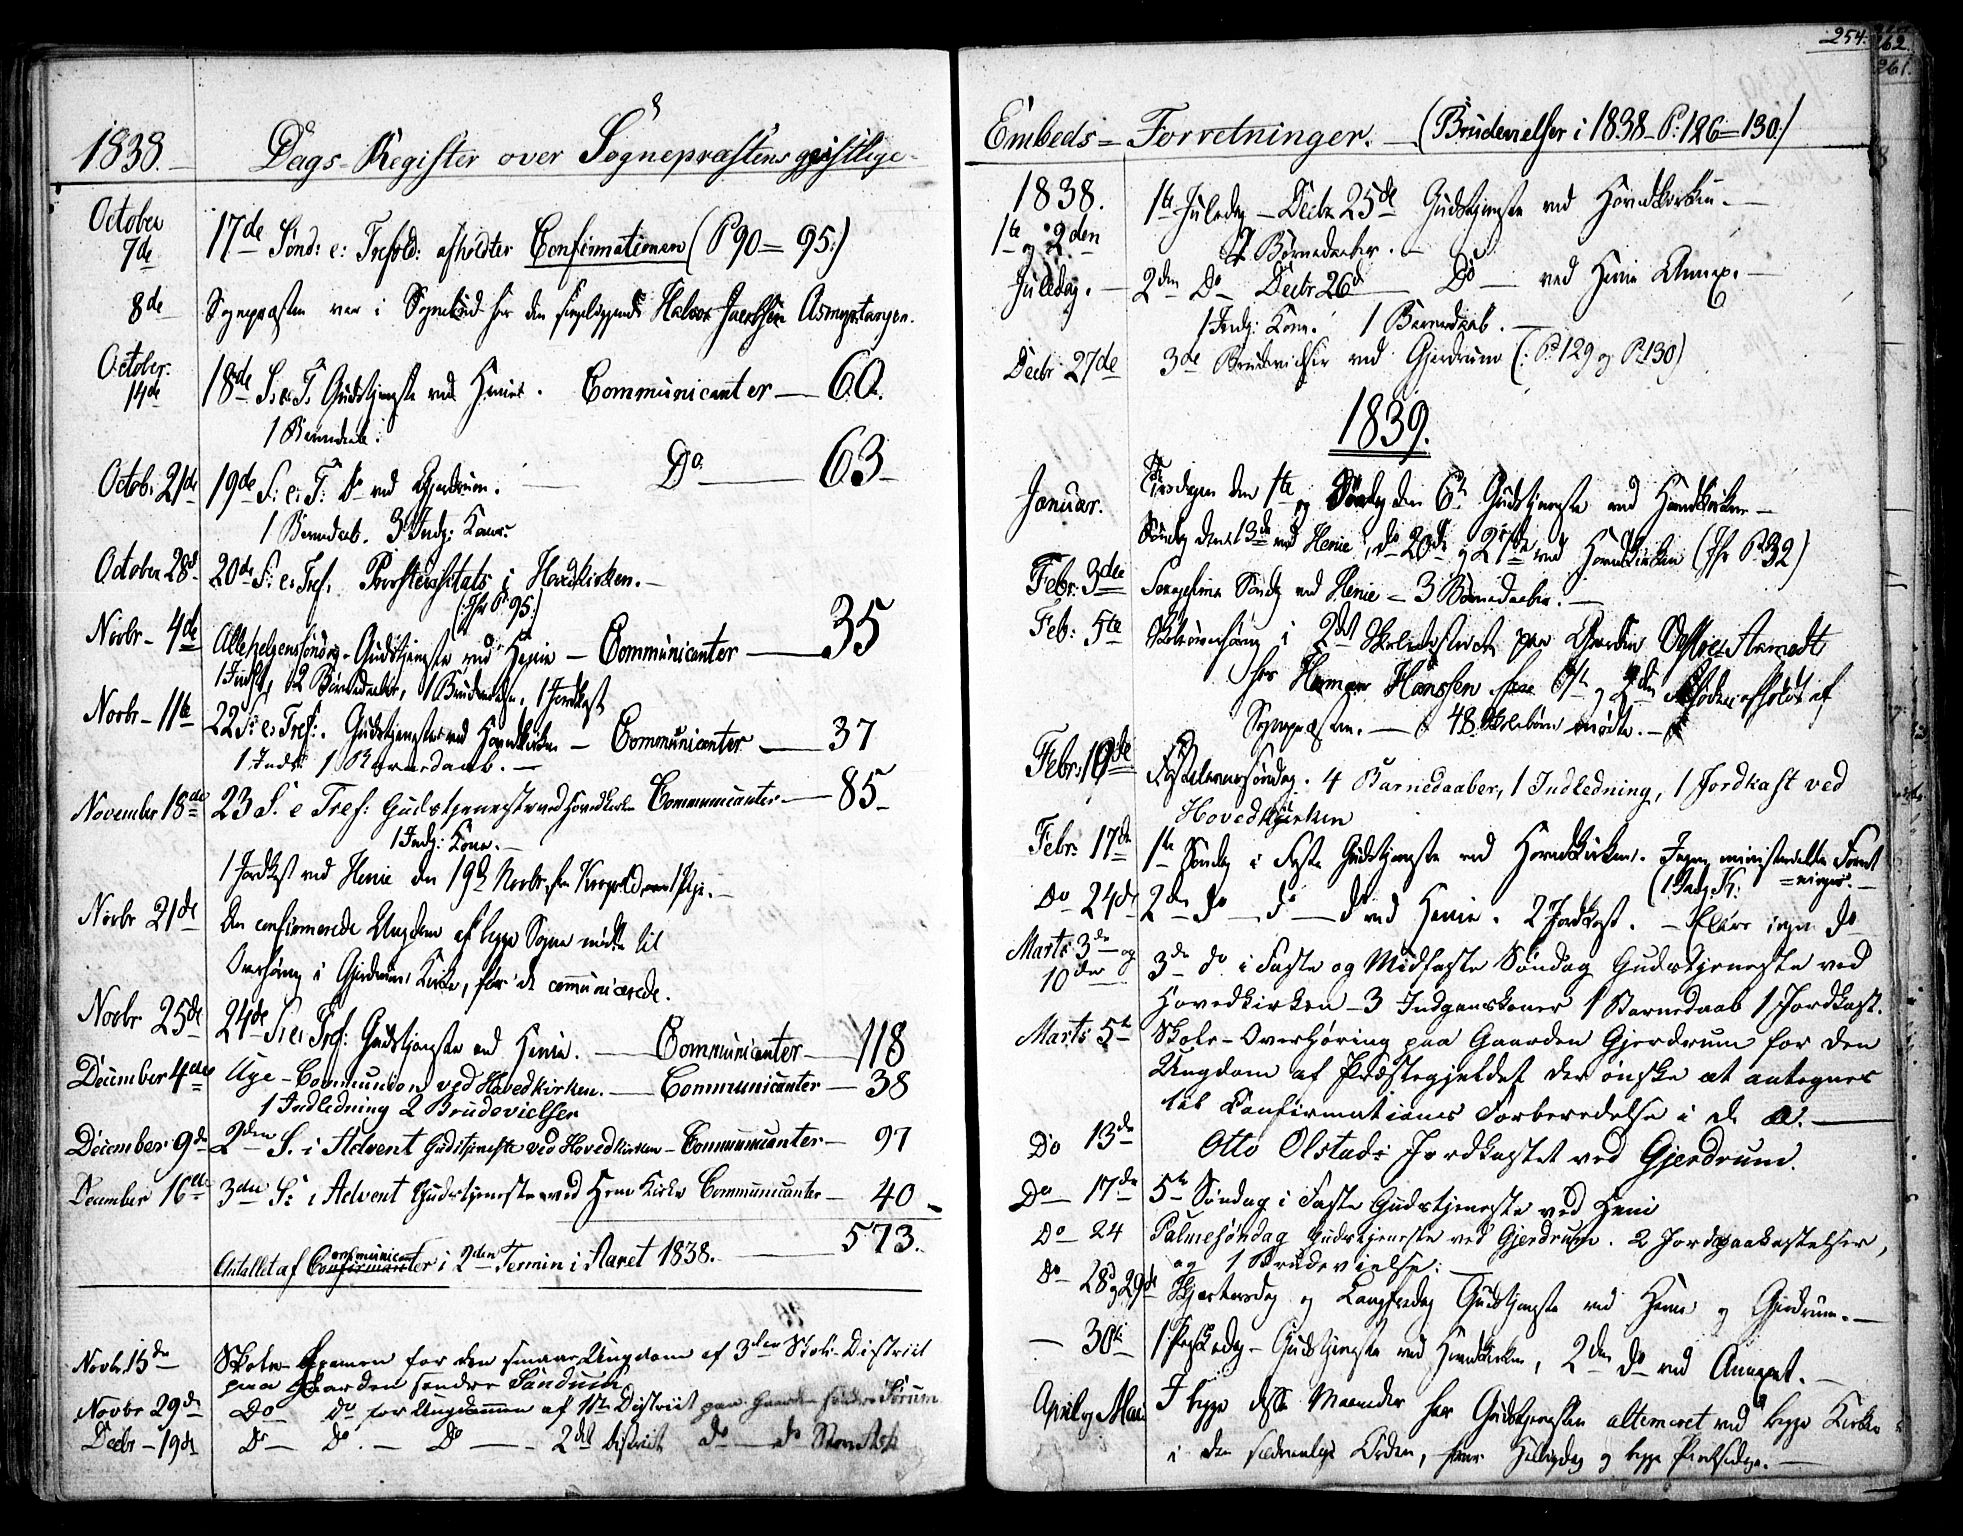 1838.
Dags-Register over Sognepræstens geistlige
October
7de
17de Sønd: e: Trefold: afholdtes Confirmationen (P 90=95:)
8de
Sognepræsten var i Sognebud hos den sygeliggende Halvor
October
14de
18de S. e. T. Gudstjeneste ved Henie. Communicanter — 60.
1 Barnedaab.
Octob: 21de
19de S: e: T: Do ved Gjerdrum. — Do — 63
1 Barnedaab. 3 Indg: Koner.
October 28d
20de S: e: Tref. Provstevisitats i Hovedkirken. —
(Jfr P. 95.)
Novbr — 4de
Allehelgenssøndag. Gudstjeneste ved Henie — Communicanter — 35
2 Barnedaaber, 1 Brudevielse, 1 Jordkast
Novbr — 11te
22 S: e: Tref:. Gudstjeneste ved Hovedkirken — Communicanter — 37
1 Indl: 1 Barnedaab. —
November 18de
23 S. e Tref: Gudstjeneste ved Hovedkirken Communicanter — 85
1 Indg: Kone. —
1 Jordkast ved Henie den 19de Novbr
Novbr 21de
Den confirmerede Ungdom af begge Sogne mødte til
Overhøring i Gjerdrums Kirke, før de communicerede.
Novbr 25de
24de S: e: Tref: Gudstjeneste ved Henie. — Communicanter — 118
December 4de
Uge-Communion ved Hovedkirken. — Communicanter — 38
1 Indledning 2 Brudevielser
December 9de
2den S. i Advent Gudstjeneste ved Hovedkirken — Communicanter — 97
December 16de
3die S: i Advent Gudstjeneste ved Heni Kirke Communicanter — 40
573.
Antallet af Communicanter i 2den Termin i Aaret 1838. —
Novbr 15de
Skole-Examen for den smaae Ungdom af 3die Skole-District
paa Gaarden søndre
Novbr 29de
Do Do for Ungdommen af 1ste District paa Gaarden søndre
Decbr — 19de
Do — Do — Do — 2det District Do — do
254.
162
261.
Embeds-Forretninger. — (Brudevielser i 1838 P: 126=130:)
1838.
1te og 2den
Juledag. —
1te Juledag — Decbr 25de Gudstjeneste ved Hovedkirken. —
2 Barnedaaber. —
2den Do Decbr 26d Do — ved Henie Annex. —
1 Indg: Kone. 1 Barnedaab. —
Decbr 27de
3de Brudevielser ved Gjerdrum (: P. 129 og P. 130)
1839.
Januar.
Tirsdagen den 1te og Søndag den 6te Gudstjeneste ved Hovedkirken —
Søndag den 13de ved Henie, do 20de og 27de ved Hovedkirken (Jfr P. 32)
Febr: 3die
Søndag ved Henie — 3 Barnedaaber. —
Feb: 5te
Skoleoverhøring i 2det Skoledistrict paa Gaarden
hos Hansen 6te og 2den afholdt af
Sognepræsten. — 48 Skolebørn mødte. —
Febr: 10de
Fastelavnssøndag. 4 Barnedaaber, 1 Indledning, 1 Jordkast ved
Hovedkirken
Febr: 17de
1te Søndag i Faste Gudstjeneste ved Hovedkirken. Ingen ministerielle Forret
=ninger. —
(1 Indg. K:
Do 24de
2den do — do — do ved Henie. 2 Jordkast. — Ellers ingen do
Marts 3de og
10de
3de do i Faste og Midfaste Søndag Gudstjeneste ved
Hovedkirken — 3 Indgangskoner 1 Barnedaab 1 Jordkast.
Marts 5te
Skole-Overhøring paa Gaarden Gjerdrum for den
Ungdom af Præstegjeldet der ønske at antegnes
til Confirmations Forberedelse i d. A. —
Do 13de
Otto Olstads Jordkastet ved Gjerdrum.
Do 17de
5te Søndag i Faste Gudstjeneste ved Heni
Do 24
Palmesøndag Gudstjeneste ved Gjerdrum. 2 Jordpaakastelser,
og 1 Brudevielse:
Do 28 og 29de
Skjærtorsdag og Langfredag Gudstjeneste ved Henie og Gjerdrum. —
— 30te
1 Paaskedag — Gudstjeneste ved Hovedkirken, 2den do ved Annexet. —
April og Mai
I begge disse Maaneder har Gudstjenesten alterneret ved begge Kirker
i den sædvanlige Orden, Helligdag og begge Pintsedage. —